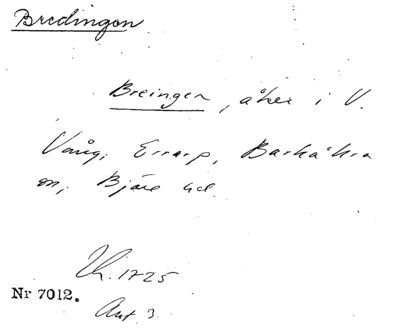 Bredingen
Breingen, åker i V.
Vång, Errarp, Barkåkra
sn, Bjäre hd.
1725
Nr 7012.
Ant 3.